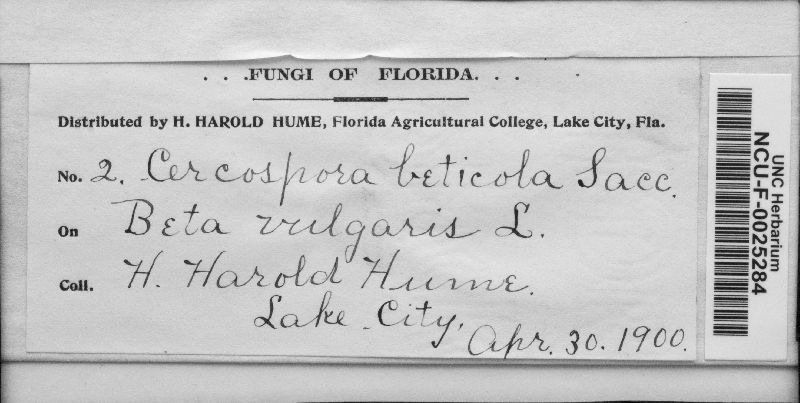 . . .FUNGI OF FLORIDA. . .
Distributed by H. HAROLD HUME, Florida Agricultural College, Lake City, Fla.
No. 2. Cercospora beticola Sacc.
On Beta vulgaris L.
Coll. H. Harold Hume.
Lake City,
Apr. 30. 1900.
UNC Herbarium
NCU-F-0025284